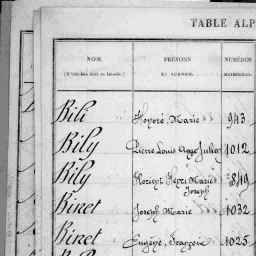 TABLE ALP
NOM. PRÉNOMS NUMÉROS
Bili Honoré Marie 943
Bily Pierre Louis Ange Julien 1012
Bily Florent Henri Marie 849
Joseph
Binet Joseph Marie 1032
Binet Eugène François 1025